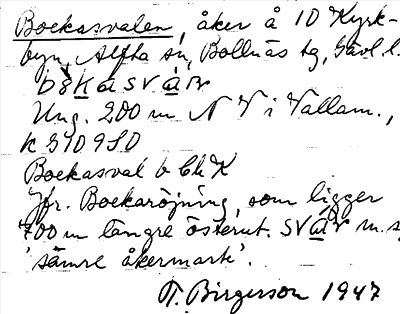 Boekasvalen, åker å 10 Kyrk-
byn, Alfta sn, Bollnäs tg, Gävl. l.
Ung. 200 m N V i Vallam.,
K 3709SO
Boekasval b Ch K
Jfr. Boekaröjning, som ligger
700 m längre österut. svår m. s.
'sämre åkermark'.
T. Birgerson 1947